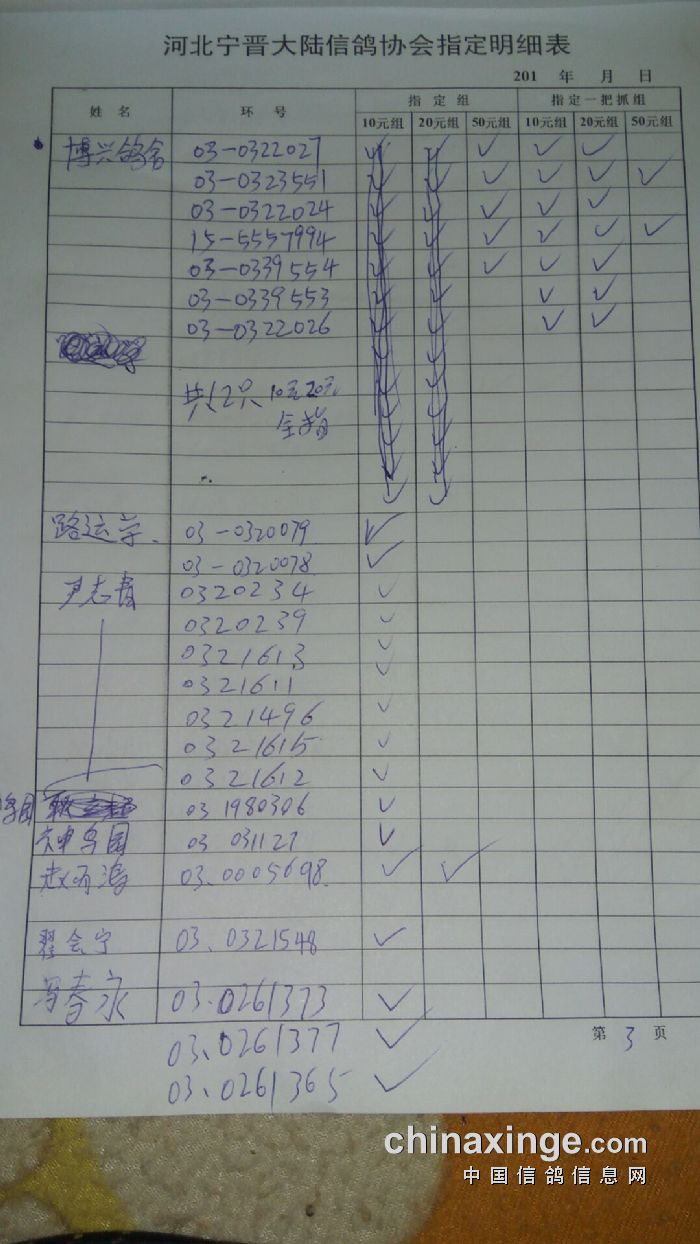 河北宁晋大陆信鸽协会指定明细表
201 年 月 日
姓 名 环 号 指 定 组 指定一把抓组
10元组 20元组 50元组 10元组 20元组 50元组
博兴鸽舍 03-0322027 ✓ ✓ ✓ ✓ ✓
03-0323551 ✓ ✓ ✓ ✓ ✓ ✓
03-0322024 ✓ ✓ ✓ ✓ ✓
15-5557994 ✓ ✓ ✓ ✓ ✓ ✓
03-0339554 ✓ ✓ ✓ ✓ ✓
03-0339553 ✓ ✓ ✓ ✓
03-0322026 ✓ ✓ ✓ ✓
共12只 10元20元
全指
路运学 03-0320079 ✓
03-0320078 ✓
尹志青 0320234 ✓
0320239 ✓
0321613 ✓
0321611 ✓
0321496 ✓
0321615 ✓
0321612 ✓
03 1980306 ✓
03 031127 ✓
03.0005698 ✓ ✓
翟会宁 03.0321548 ✓
春永 03.0261373 ✓
03.0261377 ✓
03.0261365 ✓
第 3 页
chinaxinge.com
中国信鸽信息网